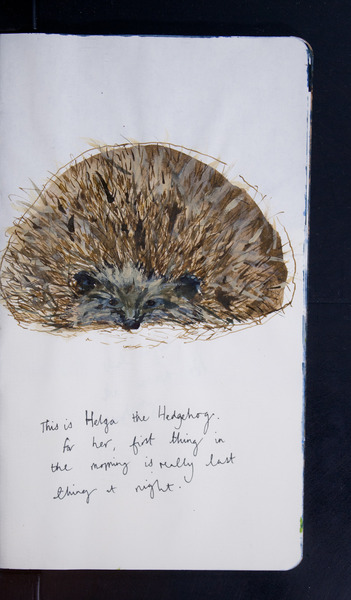 This is Helga the Hedgehog.
For her, first thing in
the morning is really last
thing at night.